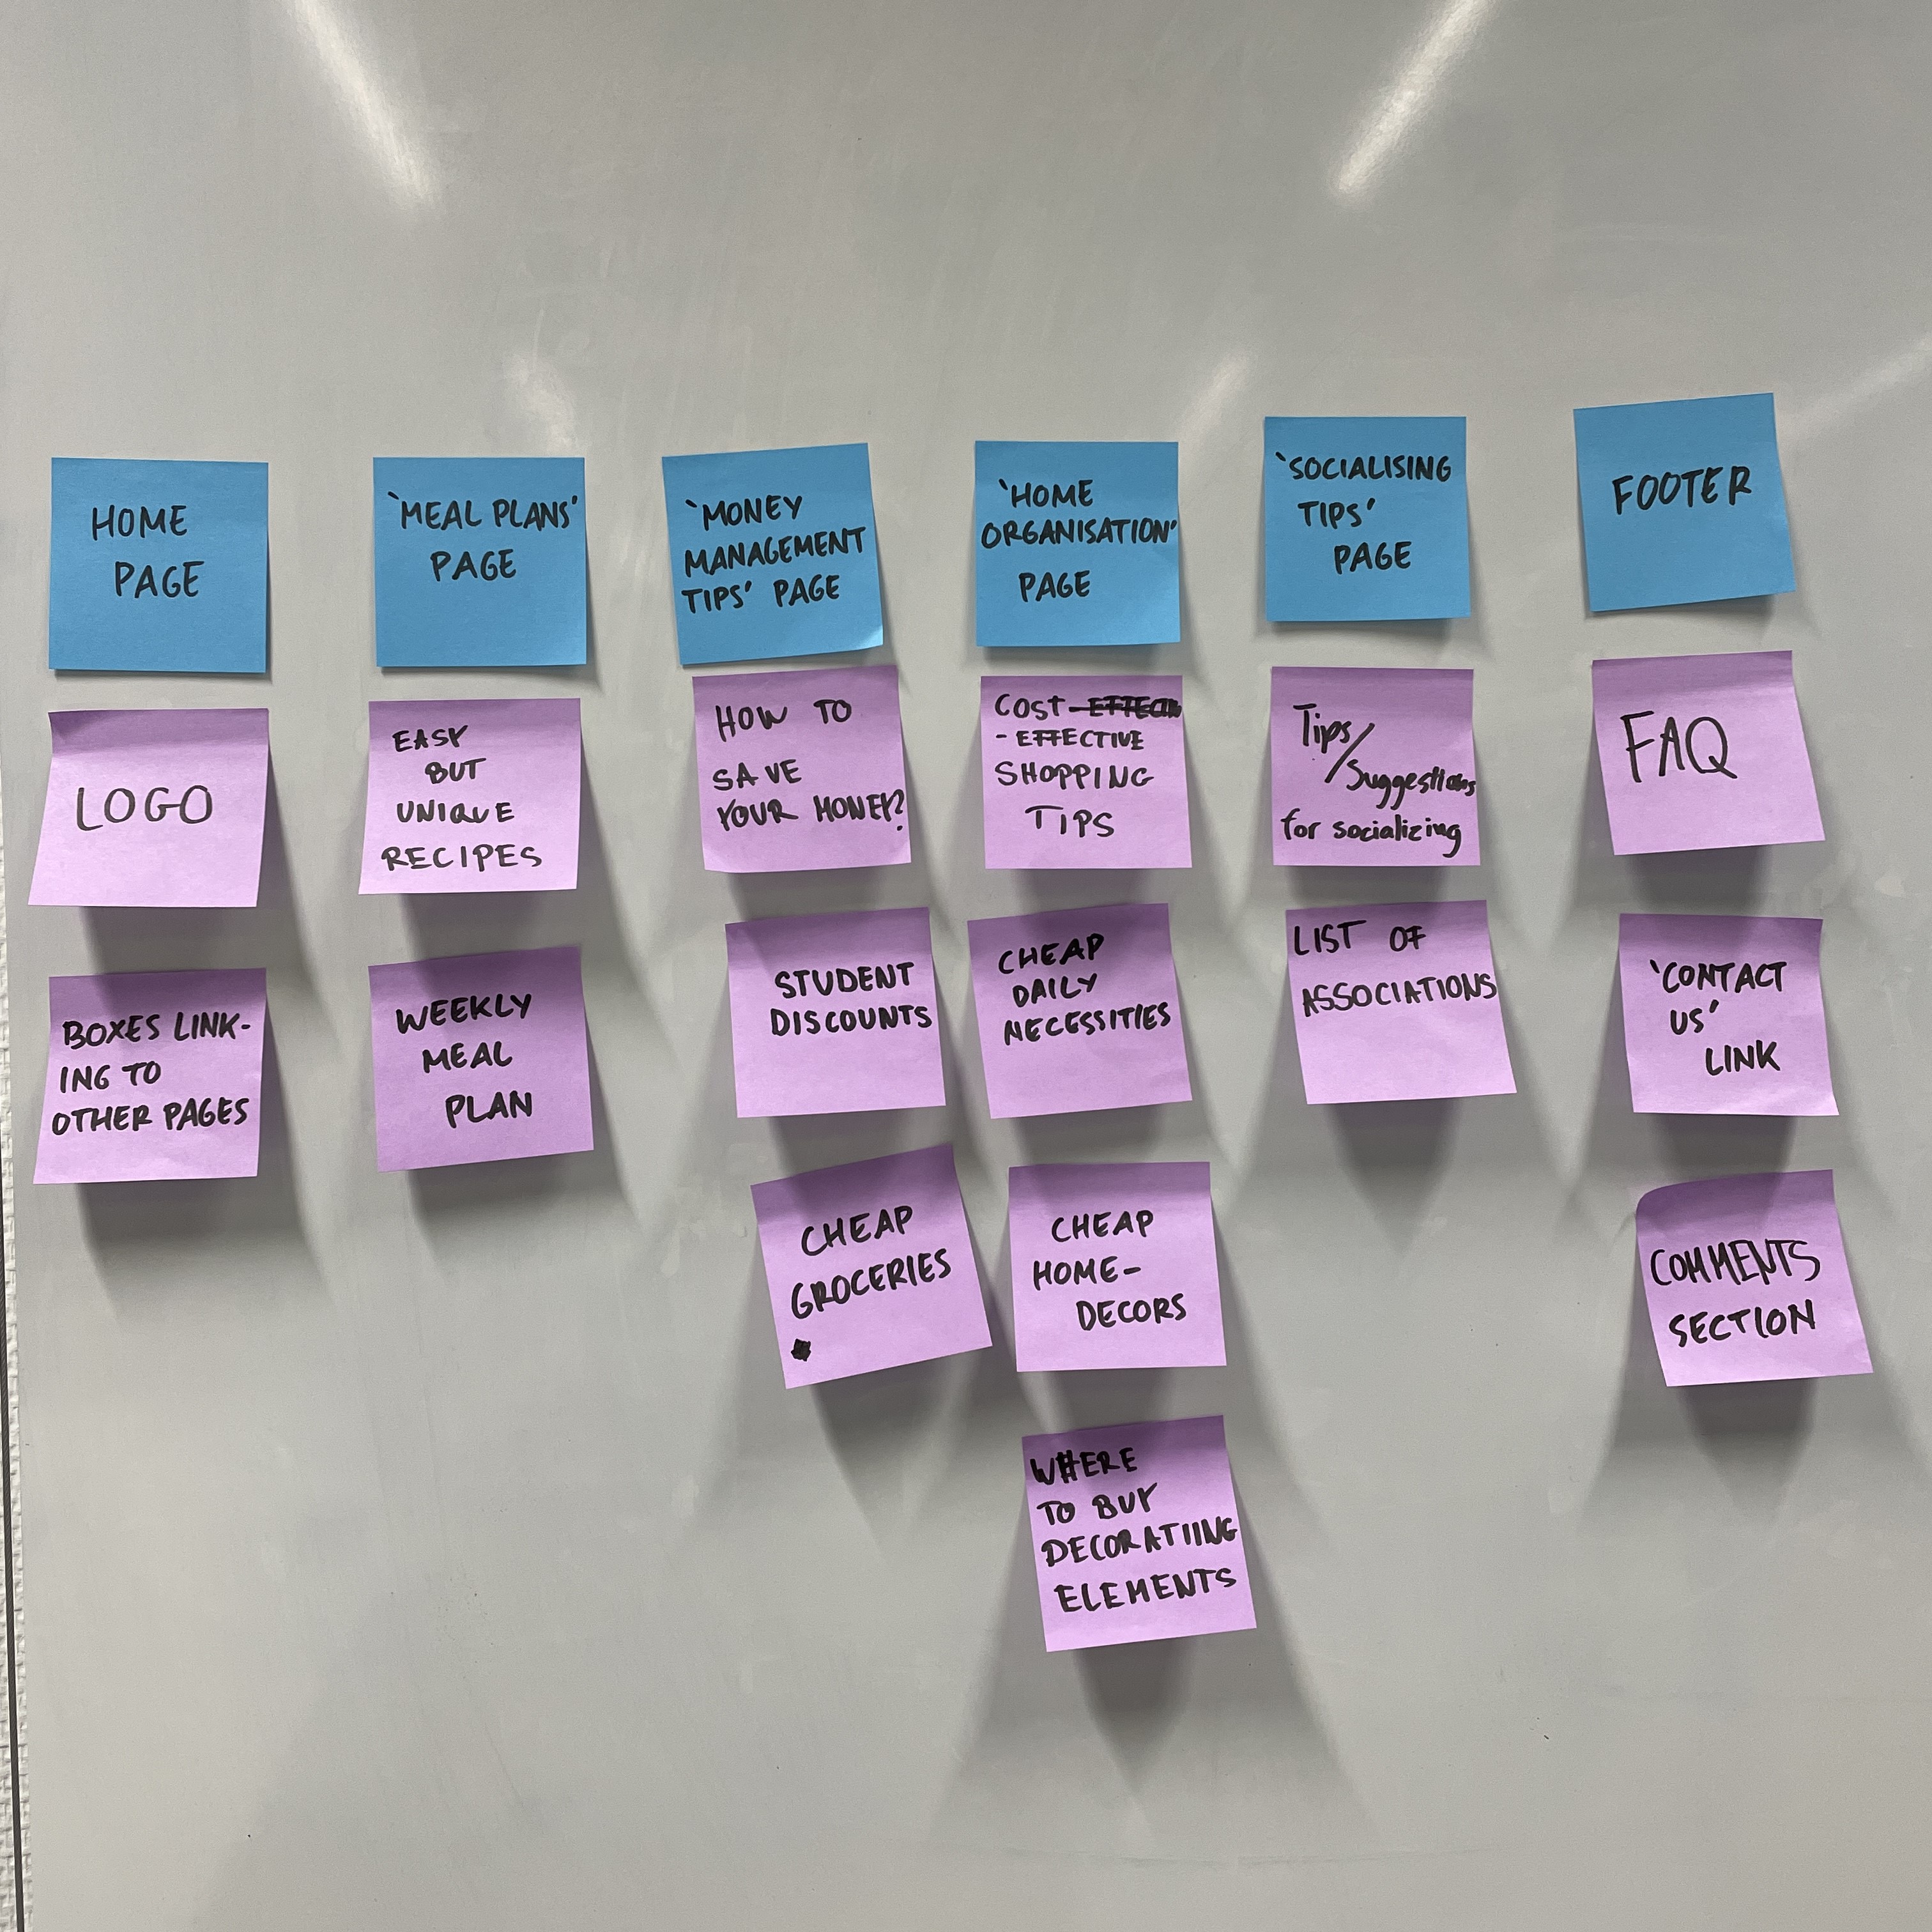 HOME
PAGE
LOGO
BOXES LINK-
ING TO
OTHER PAGES
`MEAL PLANS'
PAGE
EASY
BUT
UNIQUE
RECIPES
WEEKLY
MEAL
PLAN
`MONEY
MANAGEMENT
TIPS' PAGE
HOW TO
SAVE
YOUR MONEY?
STUDENT
DISCOUNTS
CHEAP
GROCERIES
`HOME
ORGANISATION'
PAGE
COST
- EFFECTIVE
SHOPPING
TIPS
CHEAP
DAILY
NECESSITIES
CHEAP
HOME-
DECORS
WHERE
TO BUY
DECORATIING
ELEMENTS
`SOCIALISING
TIPS'
PAGE
Tips/
Suggestions
for socializing
LIST OF
ASSOCIATIONS
FOOTER
FAQ
`CONTACT
US'
LINK
COMMENTS
SECTION